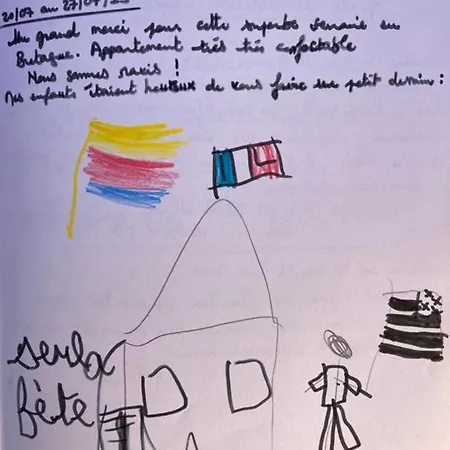 20/07 au 27/07/
Un grand merci pour cette superbe semaine en
Bretagne. Appartement très très confortable
Nous sommes ravis !
Nos enfants étaient heureux de vous faire un petit dessin :
fête